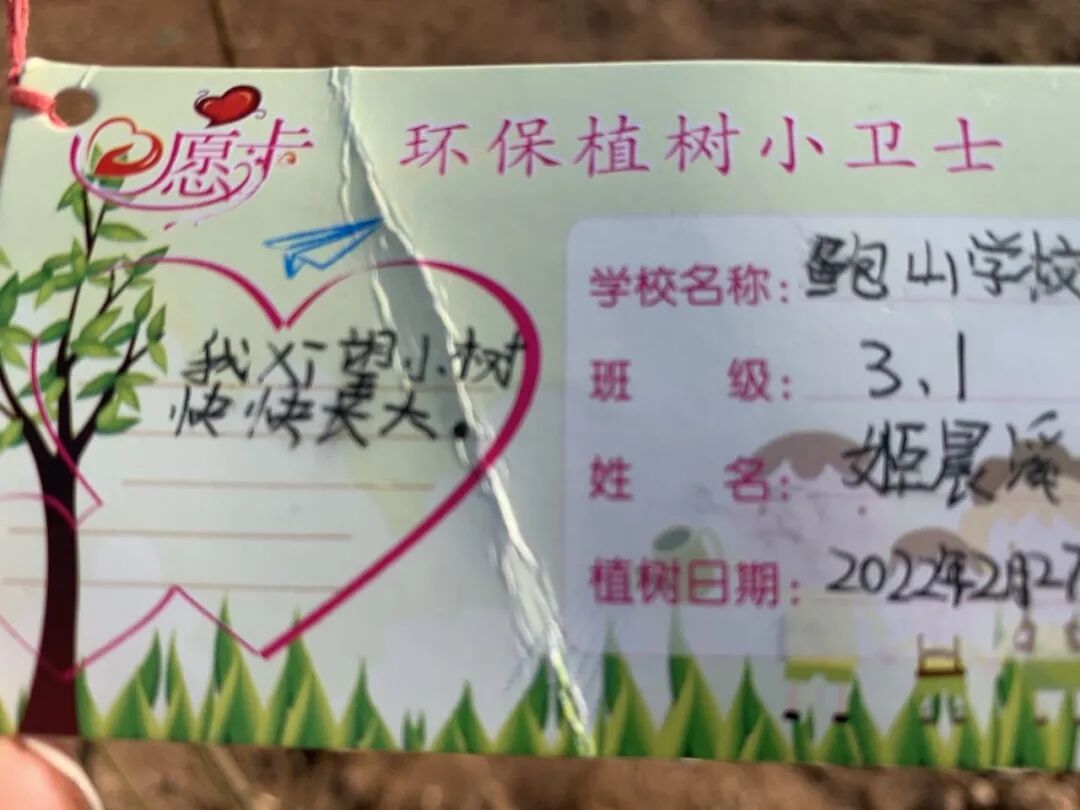 心愿卡
环保植树小卫士
我希望小树
快快长大.
学校名称: 鲍山学校
班 级: 3、1
姓 名: 姬晨
植树日期: 2022年2月27